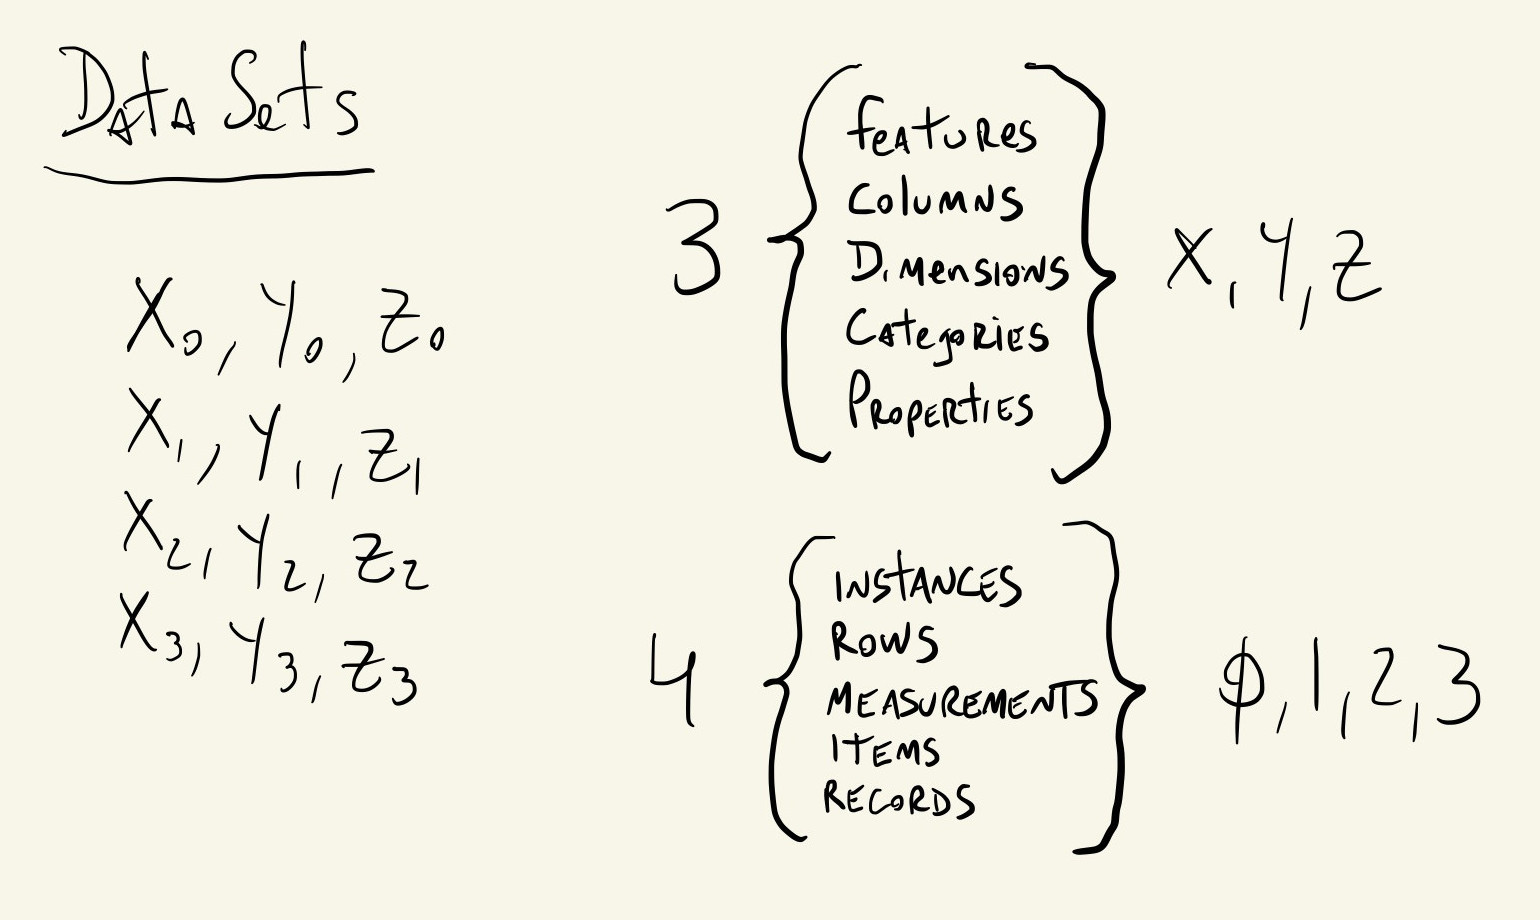 Data Sets
X₀, Y₀, Z₀
X₁, Y₁, Z₁
X₂, Y₂, Z₂
X₃, Y₃, Z₃
3 { Features
Columns
Dimensions
Categories
Properties } X, Y, Z
4 { INSTANCES
ROWS
MEASUREMENTS
ITEMS
RECORDS } ϕ, 1, 2, 3